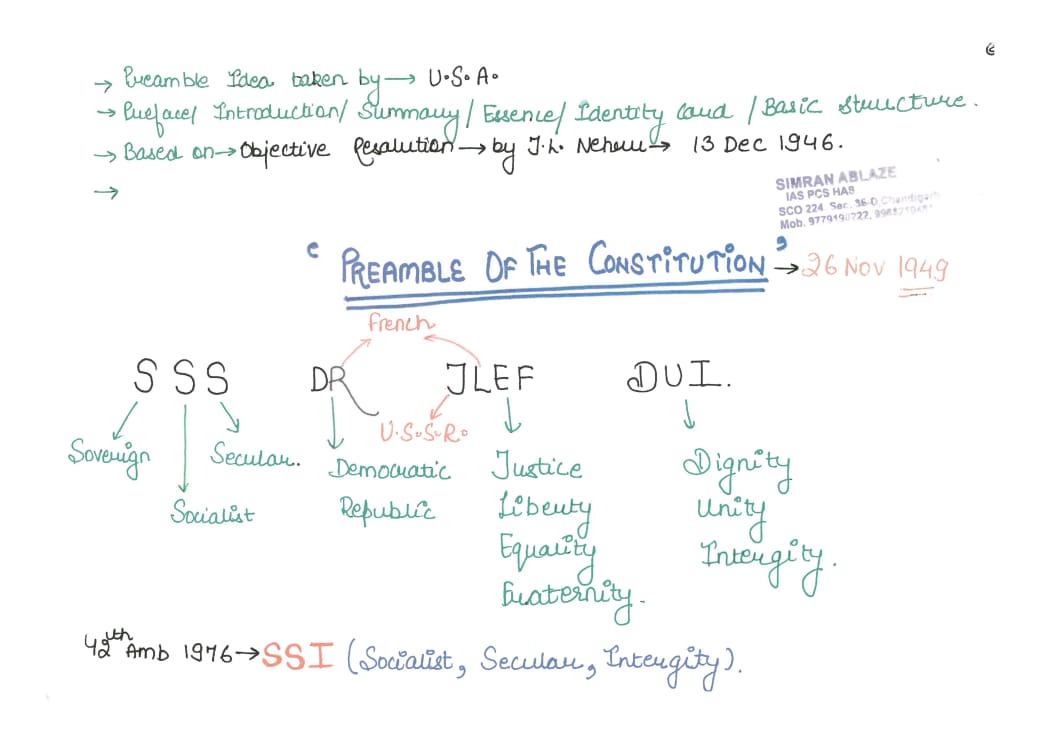 6
→ Preamble Idea taken by → U.S.A.
→ Preface/ Introduction/ Summary/ Essence/ Identity card / Basic structure.
→ Based on → Objective Resalution → by J.L. Nehru → 13 Dec 1946.
→
SIMRAN ABLAZE
IAS PCS HAS
SCO 224, Sec. 36-D, Chandigarh
Mob. 9779190222,
"PREAMBLE OF THE CONSTITUTION" → 26 Nov 1949
French
S S S DR JLEF DUI.
U.S.S.R.
Soverign Secular. Democratic Justice Dignity
Socialist Republic Liberty Unity
Equality Intergity.
Fraternity.
42th Amb 1976 → SSI (Socialist, Secular, Intergity).